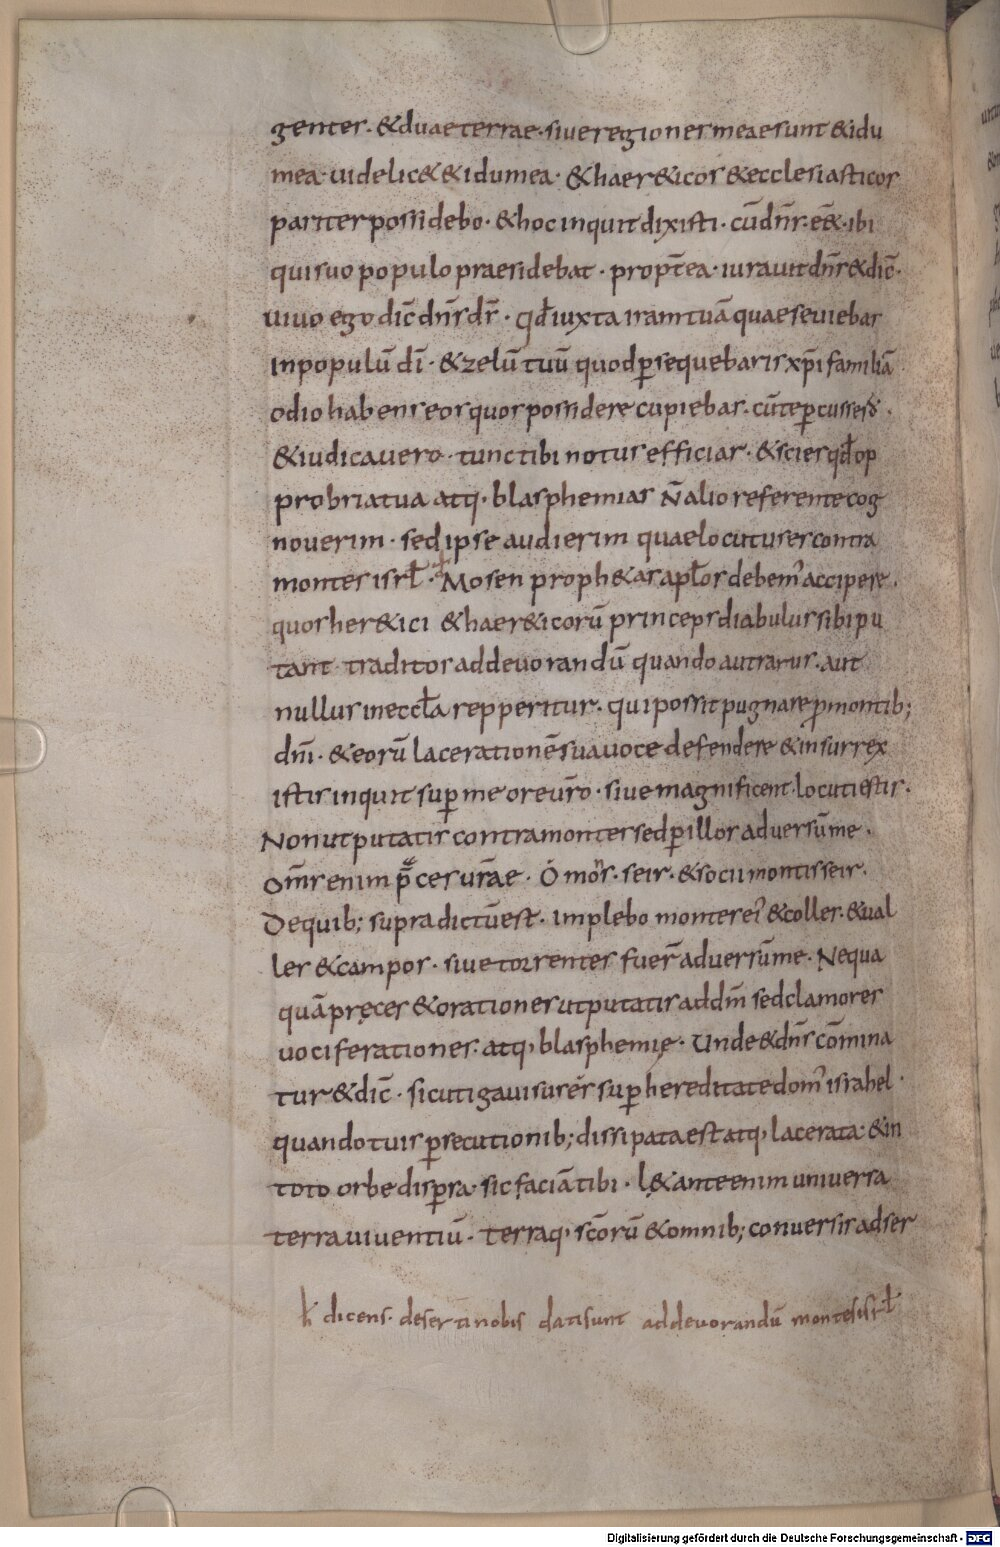 gentes · & duae terrae · siue regiones meae sunt & idu
mea · uidelic& & idumea · & haer&icos & ecclesiasticos
pariter possidebo · & hoc inquit dixisti · cū dn̄s · eēt · ibi
qui suo populo praesidebat · propt̄ea · iurauit dn̄s & dic̄ ·
uiuo ego dic̄ dn̄s ds̄ · qđ iuxta iram tuā quae seuiebas
in populū dī · & zelū tuū quod p̱sequebaris xp̄i familiā
odio habens eos quos possidere cupiebas · cū te p̱cusserō ·
& iudicauero · tunc tibi notus efficiar · & scies qđ op
probria tua atq· blasphemias n̄ alio referente cog
nouerim · sed ipse audierim quae locutus es contra
montes isrł · Mosen proph&as apłos debem' accipere ·
quos her&ici & haer&icorū princeps diabulus sibi pu
tant traditos ad deuorandū quando aut rarus · aut
nullus in eccła repperitur · qui possit pugnare p̱ montib;
dn̄i · & eorū lacerationē sua uoce defendere & insurrex
istis inquit sup̱ me ore ur̄o · siue magnificent · locuti estis ·
Non ut putatis contra montes sed p̱ illos aduersū me ·
Om̄s enim p̄ces ur̄ae · O mons · seir · & socii montis seir ·
De quib; supra dictū est · implebo montes ei' & colles · & ual
les & campos · siue torrentes fuer̄ aduersū me · Nequa
quā pręces & orationes ut putatis ad dm̄ sed clamores
uociferationes · atq· blasphemię · Unde & dn̄s cōmina
tur & dic̄ · sicuti gauisus es sup̱ hereditate dom' israhel ·
quando tuis p̱secutionib; dissipata est atq· lacerata · & in
toto orbe disp̱sa · sic faciā tibi · l&ante enim uniuersa
terra uiuentiū · terraq· scōrū & omnib; conuersis ad ser
h̄ dicens · deserti nobis dati sunt ad deuorandū montes isrł
Digitalisierung gefördert durch die Deutsche Forschungsgemeinschaft - DFG